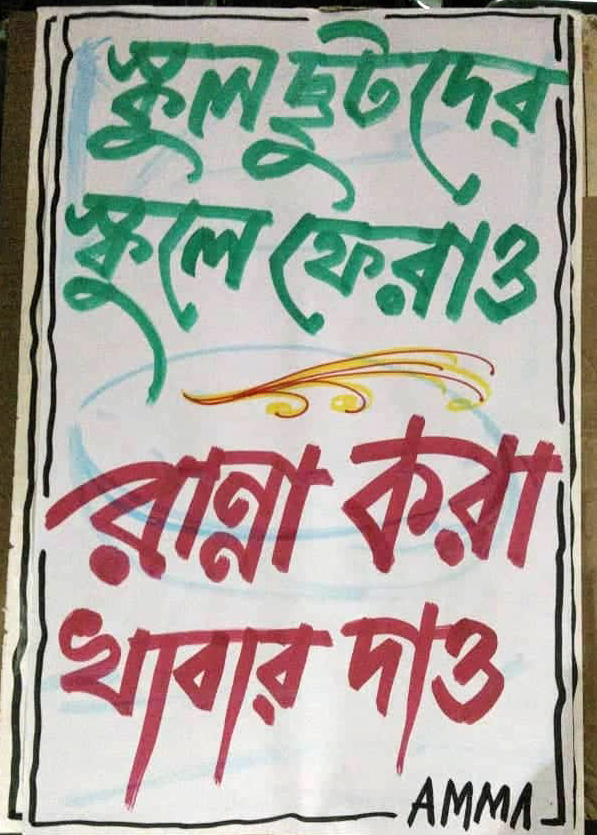 স্কুলছুটদের
স্কুলে ফেরাও
রান্না করা
খাবার দাও
AMMA